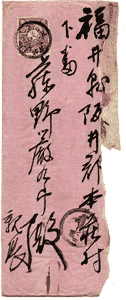 福井縣阪井郡本荘村
下番
藤野嚴九郎殿
親展